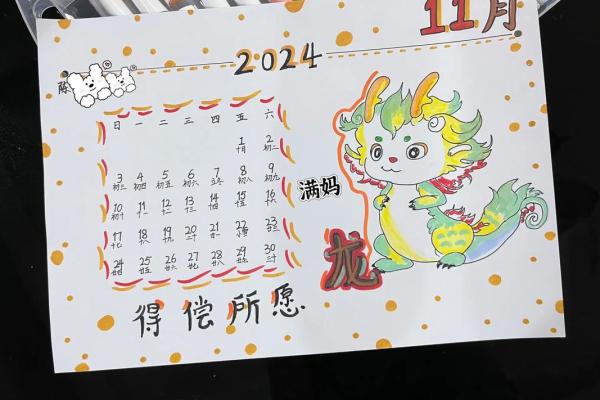 11月
2024
陈
日 一 二 三 四 五 六
1 2
十月 初二
3 4 5 6 7 8 9
初三 初四 初五 初六 立冬 初八 初九
10 11 12 13 14 15 16
初十 十一 十二 十三 十四 十五 十六
17 18 19 20 21 22 23
十七 十八 十九 二十 廿一 小雪 廿三
24 25 26 27 28 29 30
廿四 廿五 廿六 廿七 廿八 廿九 三十
满妈
龙
得偿所愿